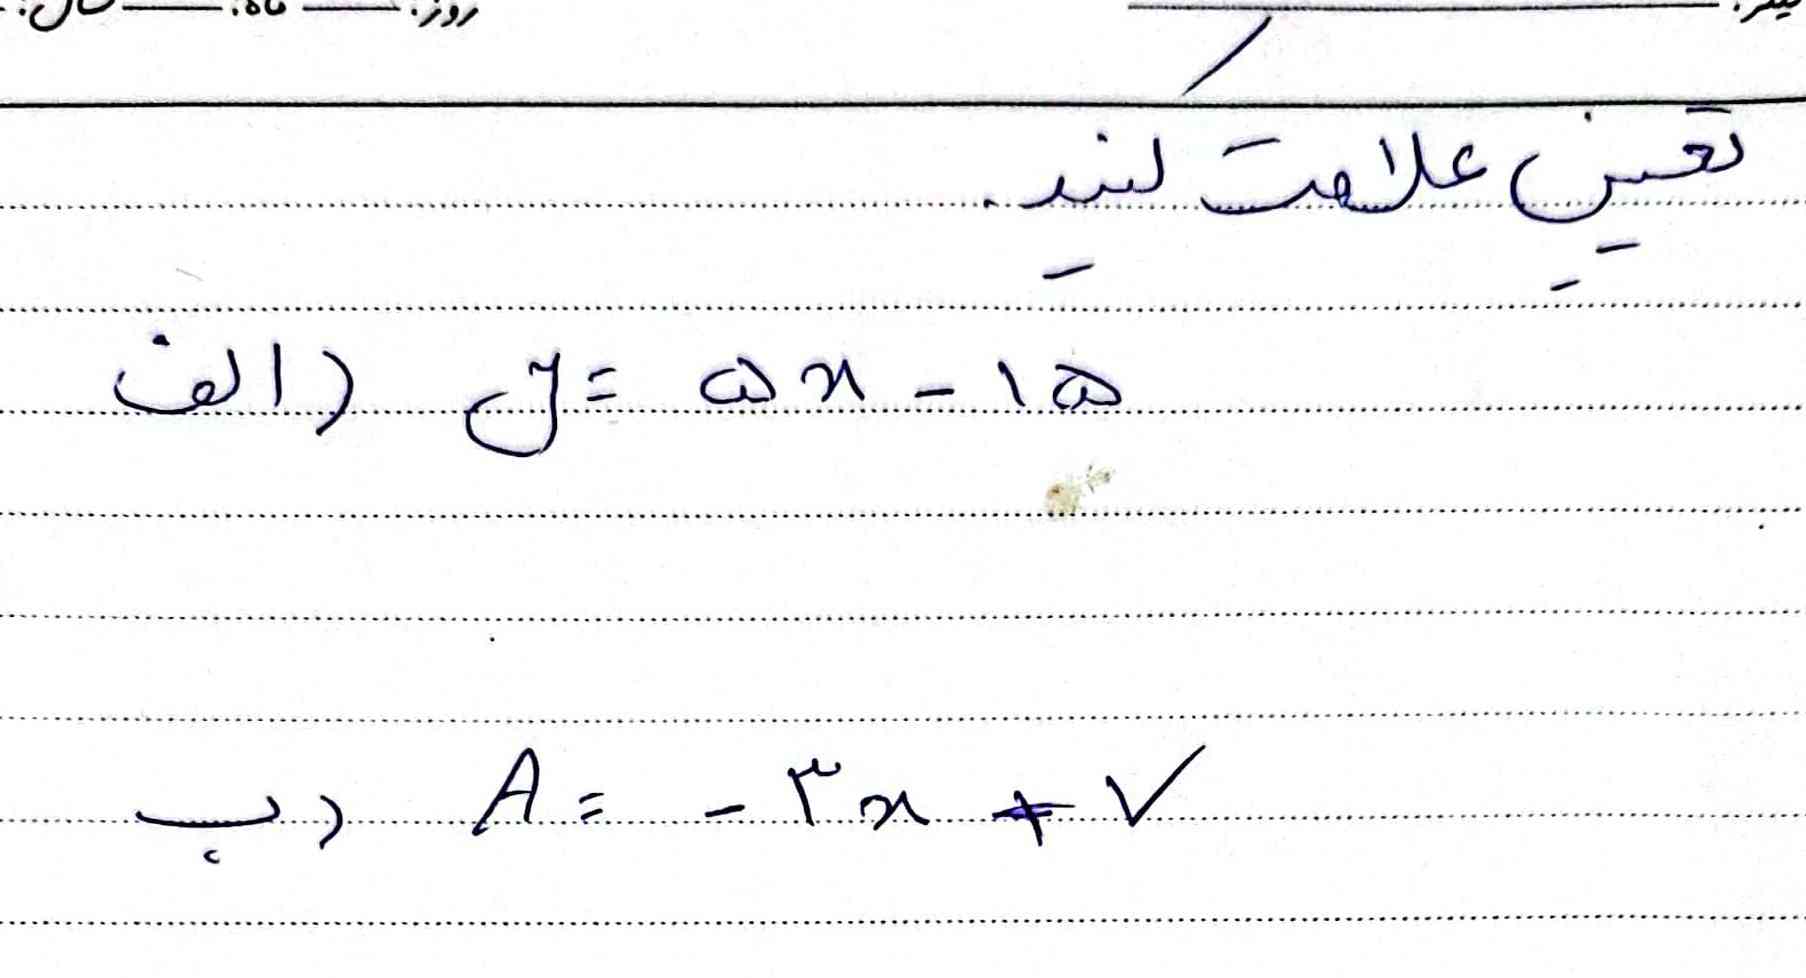 روز: ماه: سال:
تعیین علامت کنید.
الف) y = ۵x - ۱۵
ب) A = -۳x + ۷